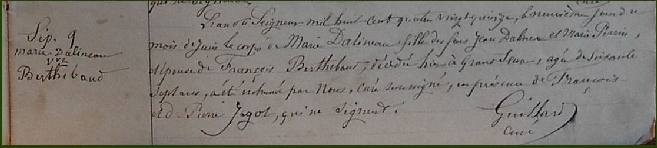 Sép. 9
marie Dalineau
Vve
Berthebaud
L'an du Seigneur mil huit cent quatre vingt quinze, le onzième jour du
mois de juin le corps de Marie Dalineau fille des feus Jean et Marie Perrin,
épouse de François Berthebaud, décédée hier à, agée de Soixante
Sept ans, a été inhumé par Nous, Curé soussigné, en présence de François
et de Pierre Jagot, qui ne signent.
Guillard
Curé